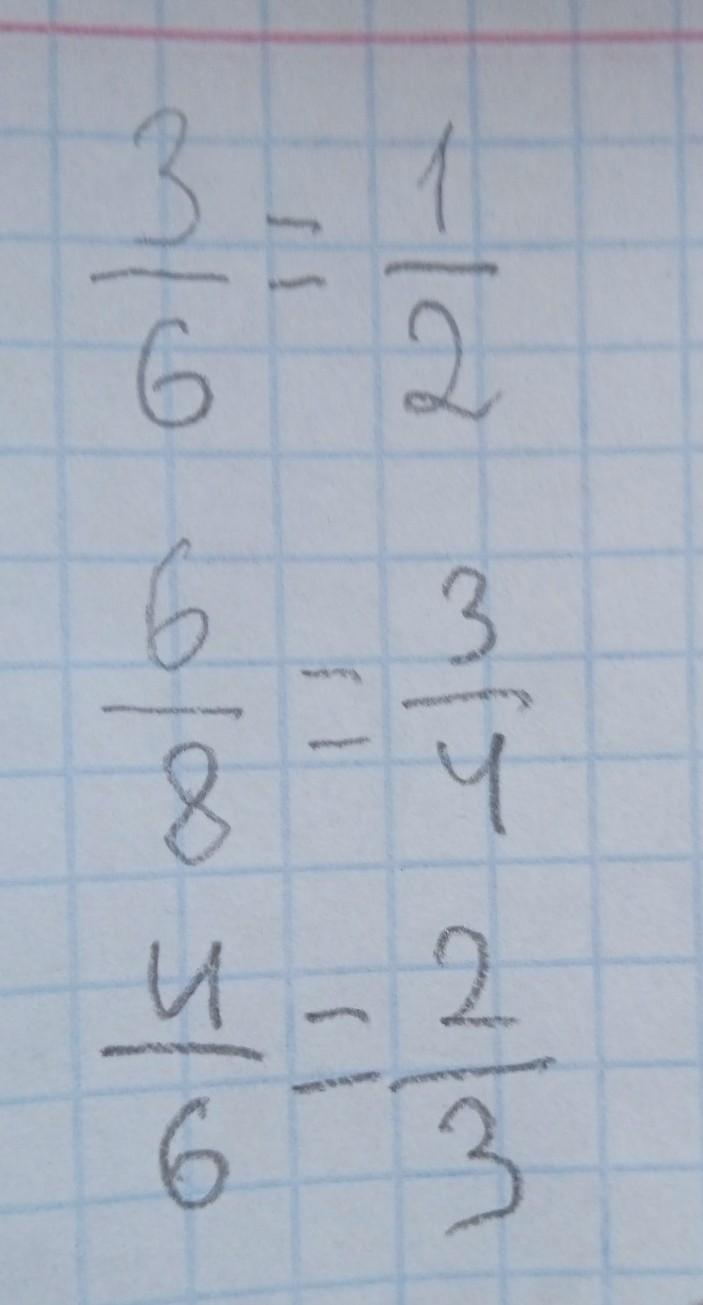 3/6 = 1/2
6/8 = 3/4
4/6 = 2/3